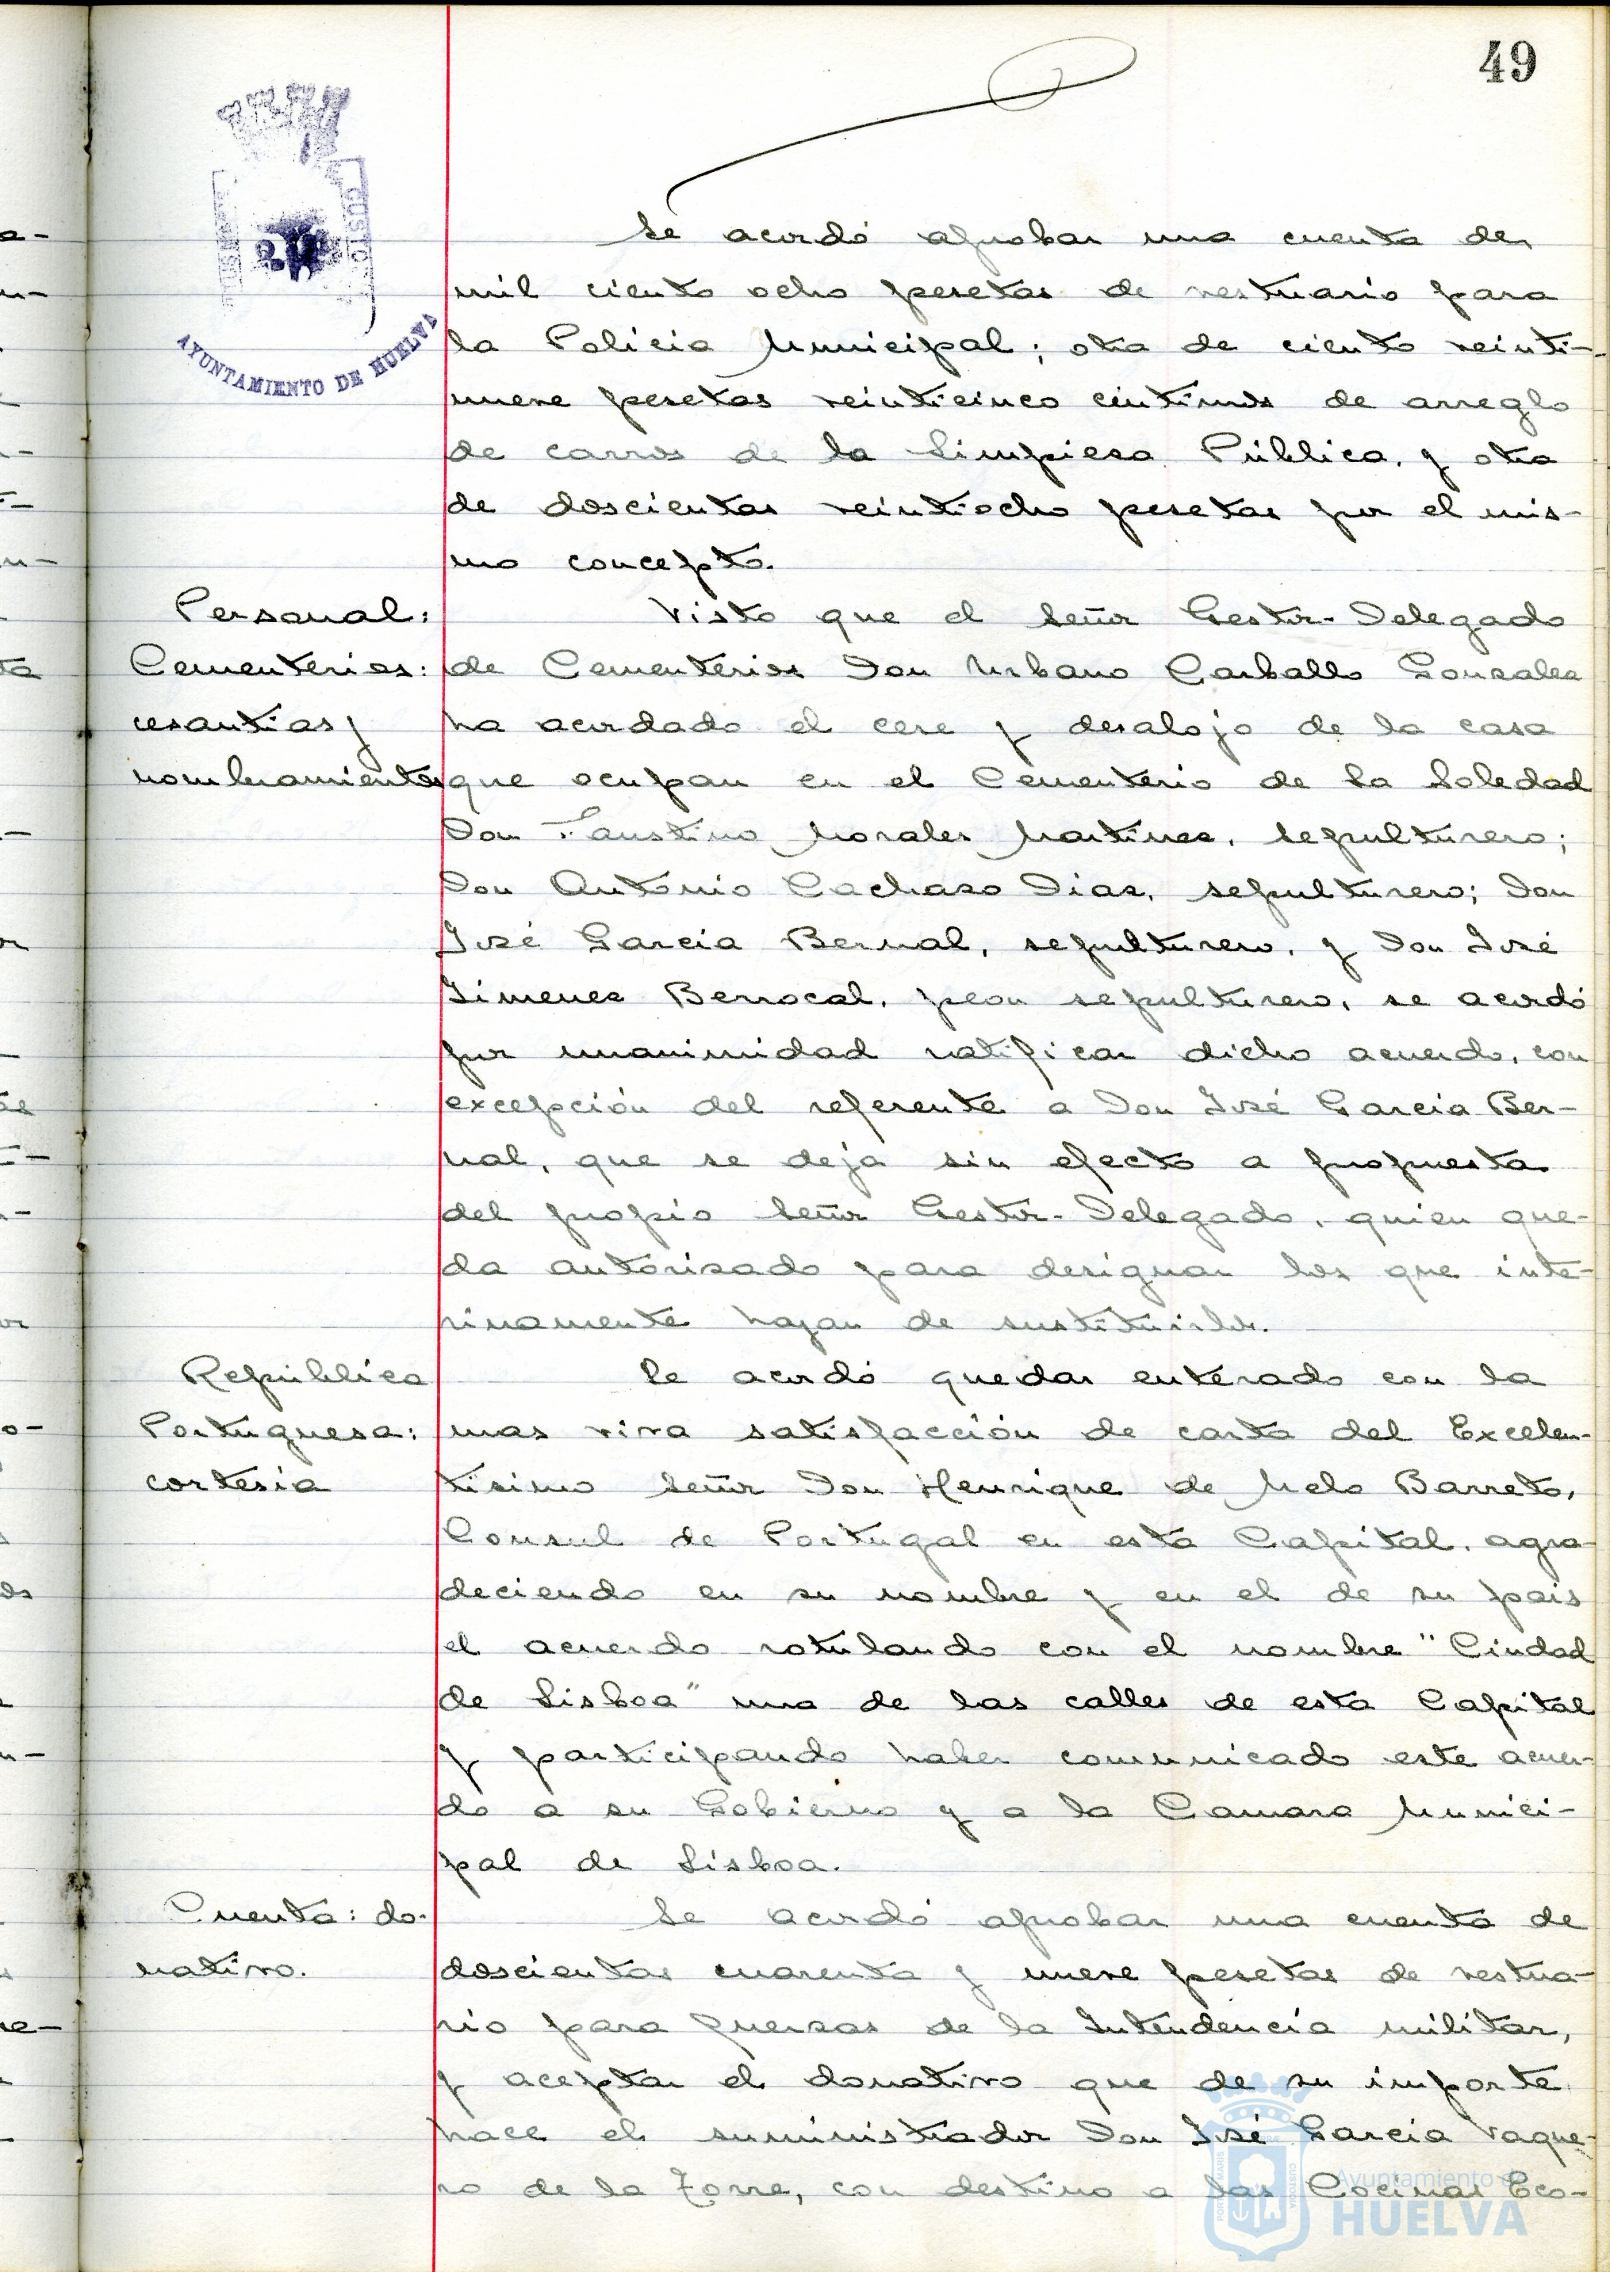 49
AYUNTAMIENTO DE HUELVA
Se acordó aprobar una cuenta de
mil ciento ocho pesetas de vestuario para
la Policia Municipal; otra de ciento veinti-
nueve pesetas veinticinco céntimos de arreglo
de carros de la Limpieza Pública, y otra
de doscientas veintiocho pesetas por el mis-
mo concepto.
Personal:
Cementerios:
cesantias y
nombramientos
Visto que el Señor Gestor-Delegado
de Cementerios Don Urbano Carballo Gonzalez
ha acordado el cese y desalojo de la casa
que ocupan en el Cementerio de la Soledad
Don Faustino Morales Martinez, sepulturero;
Don Antonio Cachazo Diaz, sepulturero; Don
José Garcia Bernal, sepulturero, y Don José
Jimenez Berrocal, peon sepulturero, se acordó
por unanimidad ratificar dicho acuerdo, con
excepción del referente a Don José Garcia Ber-
nal, que se deja sin efecto a propuesta
del propio Señor Gestor-Delegado, quien que-
da autorizado para designar los que inte-
rinamente hayan de sustituirlos.
República
Portuguesa:
cortesia
Se acordó quedar enterado con la
mas viva satisfacción de carta del Excelen-
tisimo Señor Don Henrique de Melo Barreto,
Consul de Portugal en esta Capital, agra-
deciendo en su nombre y en el de su pais
el acuerdo rotulando con el nombre "Ciudad
de Lisboa" una de las calles de esta Capital
y participando haber comunicado este acuer-
do a su Gobierno y a la Camara Munici-
pal de Lisboa.
Cuenta: do-
nativo.
Se acordó aprobar una cuenta de
doscientas cuarenta y nueve pesetas de vestua-
rio para fuerzas de la Intendencia militar,
y aceptar el donativo que de su importe
hace el suministrador Don José Garcia Vaque-
ro de la Torre, con destino a las Cocinas Eco-
Ayuntamiento de
HUELVA